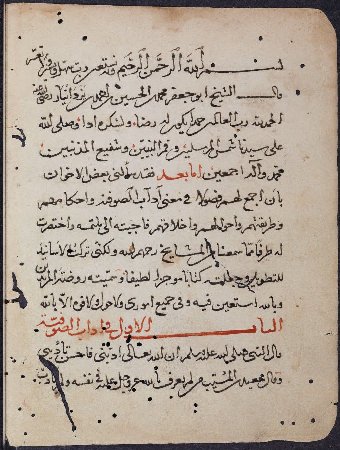 بسم الله الرحمن الرحيم وبه نستعين
قال الشيخ ابو جعفر محمد بن الحسين بن احمد بن
الحمد لله رب العالمين حمدا يكون له رضاء ولشكره اداء وصلى الله
على سيدنا شمس المرسلين وقمر النبيين وشفيع المذنبين
محمد وآله اجمعين اما بعد فقد سألني بعض الاخوان
بان اجمع لهم فصولا في معنى آداب الصوفية واحكامهم
وطريقتهم واحوالهم واخلاقهم فاجبته الى ملتمسه واختصرت
له طرفا مما سمعنا من المشايخ رحمهم الله ولكني تركت الاسانيد
للتطويل وجعلته كتابا موجزا لطيفا وسميته روضة المريدين
وبالله استعين فيه وفي جميع اموري ولا حول ولا قوة الا بالله
الباب الاول في آداب الصوفية
قال النبي صلى الله عليه وسلم ان الله تعالى ادبني فاحسن تأديبي
وقال سعيد بن المسيب من لم يعرف ما لله عز وجل عليه في نفسه